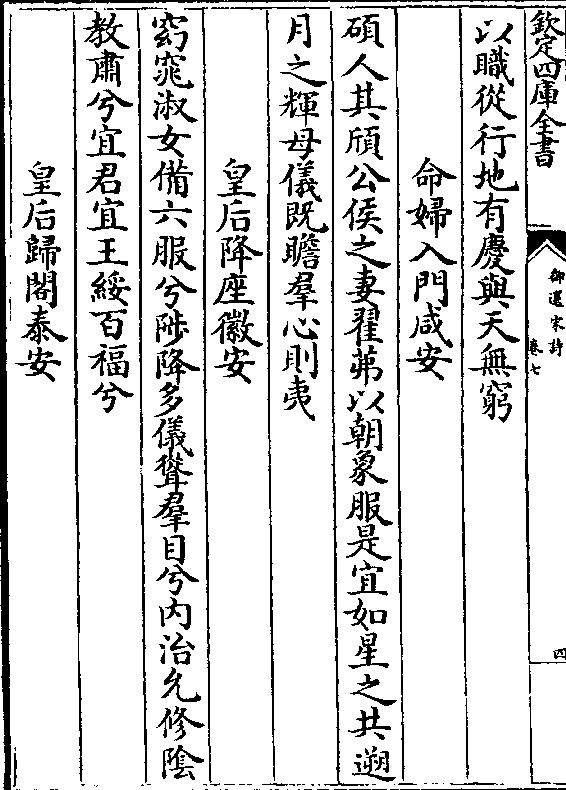 欽定四庫全書
御選宋詩
卷七
四
以職從行地有慶與天無窮
命婦入門咸安
碩人其頎公侯之妻翟茀以朝象服是宜如星之共遡
月之輝母儀既瞻羣心則夷
皇后降座徽安
窈窕淑女備六服兮陟降多儀聳羣目兮内治允修陰
教肅兮宜君宜王綏百福兮
皇后歸閣泰安